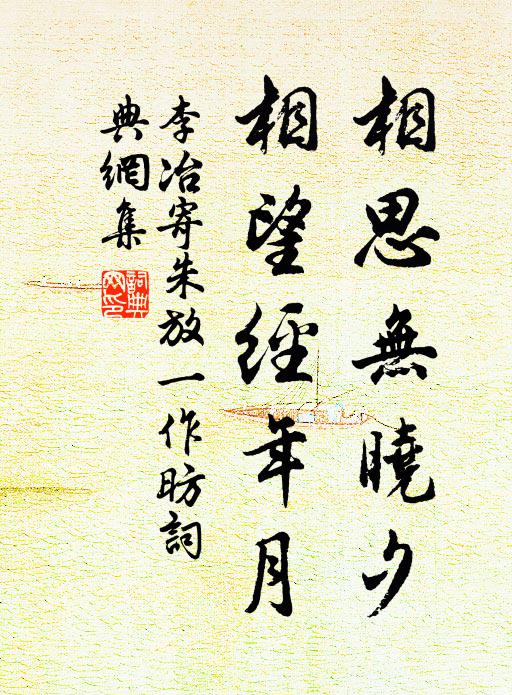 相思無曉夕
相望經年月
李冶寄朱放一作昉詞
典網集
詞典網印